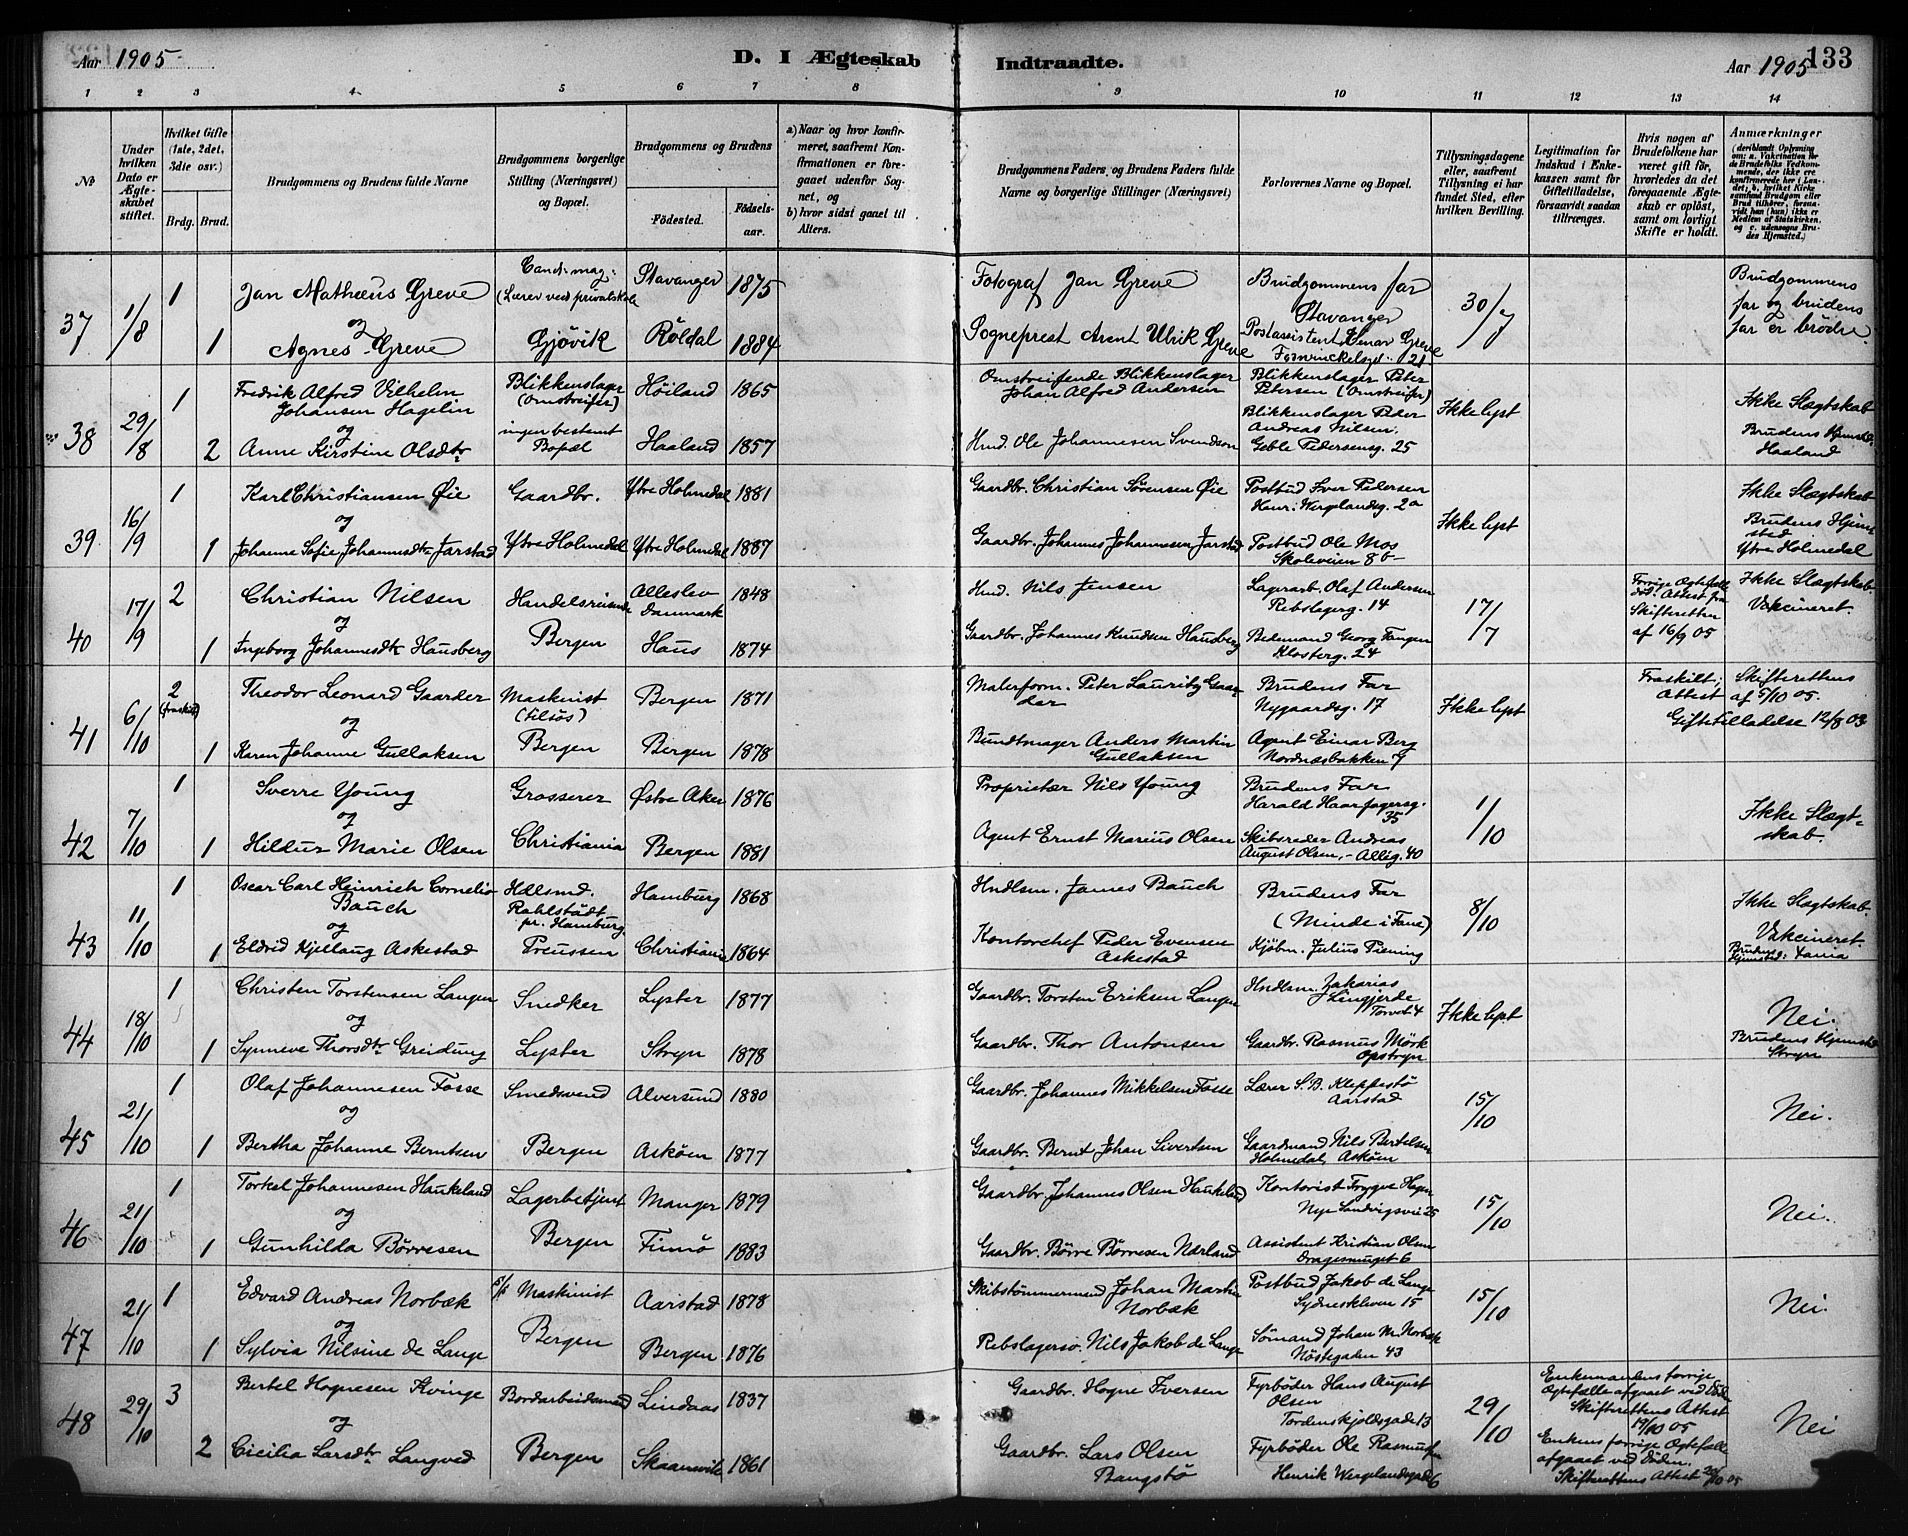 Aar 1905
D. I Ægteskab
Indtraadte.
Aar 1905
133
1 2 3 4 5 6 7 8 9 10 11 12 13 14
№
Under hvilken Dato er Ægteskabet stiftet.
Hvilket Gifte (1ste, 2det, 3die osv.)
Brdg. Brud.
Brudgommens og Brudens fulde Navne
Brudgommens borgerlige Stilling (Næringsvei) og Bopæl.
Brudgommens og Brudens
Födested.
Födselsaar.
a) Naar og hvor konfirmeret, saafremt Konfirmationen er foregaaet udenfor Sognet, og
b) hvor sidst gaaet til Alters.
Brudgommens Faders og Brudens Faders fulde Navne og borgerlige Stillinger (Næringsvei)
Forlovernes Navne og Bopæl.
Tillysningsdagene eller, saafremt Tillysning ei har fundet Sted, efter hvilken Bevilling.
Legitimation for Indskud i Enkekassen samt for Giftetilladelse, forsaavidt saadan tiltrænges.
Hvis nogen af Brudefolkene har været gift før, hvorledes da det foregaaende Ægteskab er opløst, samt om lovligt Skifte er holdt.
Anmærkninger
37 1/8 1 Jan Mathæus Greve Cand. mag. (Lærer ved privatskole Stavanger 1875 Fotograf Jan Greve Brudgommens far Stavanger 30/7 Brudgommens far og brudens far er brødre.
og
1 Agnes Greve Gjøvik Röldal 1884 Sogneprest Arent Ulrik Greve Postassistent Einar Greve 21
38 29/8 1 Fredrik Alfred Vilhelm Johansen Hagelin Blikkenslager (Omstreifer) Höiland 1865 Omstreifende Blikkenslager Johan Alfred Andersen Blikkenslager Peter Petersen (Omstreifer) Ikke lyst Ikke Slægtskab
og
2 Anne Kirstine Olsdtr ingen bestemt Bopæl Haaland 1857 Hmd. Ole Johannesen Svendsen Blikkenslager Peder Andreas Nilsen. Geble Pedersensg. 25 Brudens Hjemsted Haaland
39 16/9 1 Karl Christiansen Øie Gaardbr. Ytre Holmedal 1881 Gaardbr. Christian Sørensen Øie Postbud Iver Pedersen Henr. Wergelandsg. 2a Ikke lyst Ikke Slægtskab
og
1 Johanne Sofie Johannesdtr Jarstad Ytre Holmedal Ytre Holmedal 1887 Gaardbr. Johannes Johannesen Jarstad Postbud Ole Mos Skoleveien 8b Brudens Hjemsted Ytre Holmedal
40 17/9 2 Christian Nilsen Handelsreisende Alleslev Danmark 1848 Hmd. Nils Jensen Lagerarb. Olaf Andersen Rebslagerg. 14 17/7 Forrige Ægtefælle död. Attest fra Skifteretten af 16/9 05 Ikke Slægtskab Vakcineret
og
1 Ingeborg Johannesdtr Hausberg Bergen Haus 1874 Gaardbr. Johannes Knudsen Hausberg Bedemand Georg Fangen Klosterg. 24
41 6/10 2 (fraskilt) Theodor Leonard Gaarder Maskinist (tilsøs) Bergen 1871 Malerform. Peter Lauritz Gaarder Brudens Far Nygaardsg. 17 Ikke lyst Fraskilt; Attest Skifterettens af 5/10 05. Giftetilladelse 12/8 03
og
1 Karen Johanne Gullaksen Bergen Bergen 1878 Bundtmager Anders Martin Gullaksen Agent Einar Berg Nordnæsbakken 9
42 7/10 1 Sverre Young Grosserer Østre Aker 1876 Proprietær Nils Young Brudens Far Harald Haarfagersg. 35 1/10 Ikke Slægtskab.
og
1 Hildur Marie Olsen Christiania Bergen 1881 Agent Ernst Marius Olsen Skibsreder Andreas August Olsen, - Alleg. 40
43 11/10 1 Oscar Carl Heinrich Cornelio Bauch Hdlsmd. Rahlstädt pr. Hamburg Hamburg 1868 Hndlsm. James Bauch Brudens Far (Minde i Fane) 8/10 Ikke Slægtskab. Vakcineret
og
1 Eldrid Kjellaug Askestad Preussen Christiania 1864 Kontorchef Peder Evensen Askestad Kjöbm. Julius Piening Brudens Hjemsted: Fana
44 18/10 1 Christen Torstensen Langer Snedker Lyster 1877 Gaardbr. Torsten Eriksen Langer Hndlsm. Zakarias Lingjerde Torvet 4 Ikke lyst Nei.
og
1 Synneve Thorsdtr Greidung Lyster Stryn 1878 Gaardbr. Thor Antonsen Gaardbr. Rasmus Mörk Opstryn Brudens Hjemsted Stryn
45 21/10 1 Olaf Johannesen Fosse Smedsvend Alversund 1880 Gaardbr. Johannes Mikkelsen Fosse Lærer S. B. Kleppestø Aarstad 15/10 Nei.
og
1 Bertha Johanne Berntsen Bergen Asköen 1877 Gaardbr. Bernt Johan Sivertsen Gaardmand Nils Bertelsen Holmedal, Asköen
46 21/10 1 Torkel Johannesen Haukeland Lagerbetjent Manger 1879 Gaardbr. Johannes Olsen Haukeland Kontorist Trygve Nye Sandvigsvei 25 15/10 Nei.
og
1 Gunhilda Børresen Bergen Finnø 1883 Gaardbr. Børre Børresen Nærland Assistent Kristian Olsen Dragesmuget 6
47 21/10 1 Edvard Andreas Norbæk Maskinist Aarstad 1878 Skibstömmermand Johan Martin Norbæk Postbud Jakob de Lange Sydneskleven 15 15/10 Nei.
og
1 Sylvia Nilsine de Lange Bergen Bergen 1876 Rebslagersv. Nils Jakob de Lange Sömand Johan M. Norbæk Nöstegaden 43
48 29/10 3 Bertel Hognesen Kvinge Bordarbeidsmand Lindaas 1837 Gaardbr. Hogne Iversen Fyrböder Hans August Olsen Tordenskjoldsgade 13 29/10 Enkemandens forrige Ægtefælle afgaaet ved Döden Skifterettens Attest 19/10 05 Nei
og
2 Cicilia Larsdtr Langved Bergen Skaanevik 1861 Gaardbr. Lars Olsen Bangstø Fyrböder Ole Rasmussen Henrik Wergelandsgade 6 Enkens forrige Ægtefælle afgaaet ved Döden. Skifterettens Attest 20/10 05